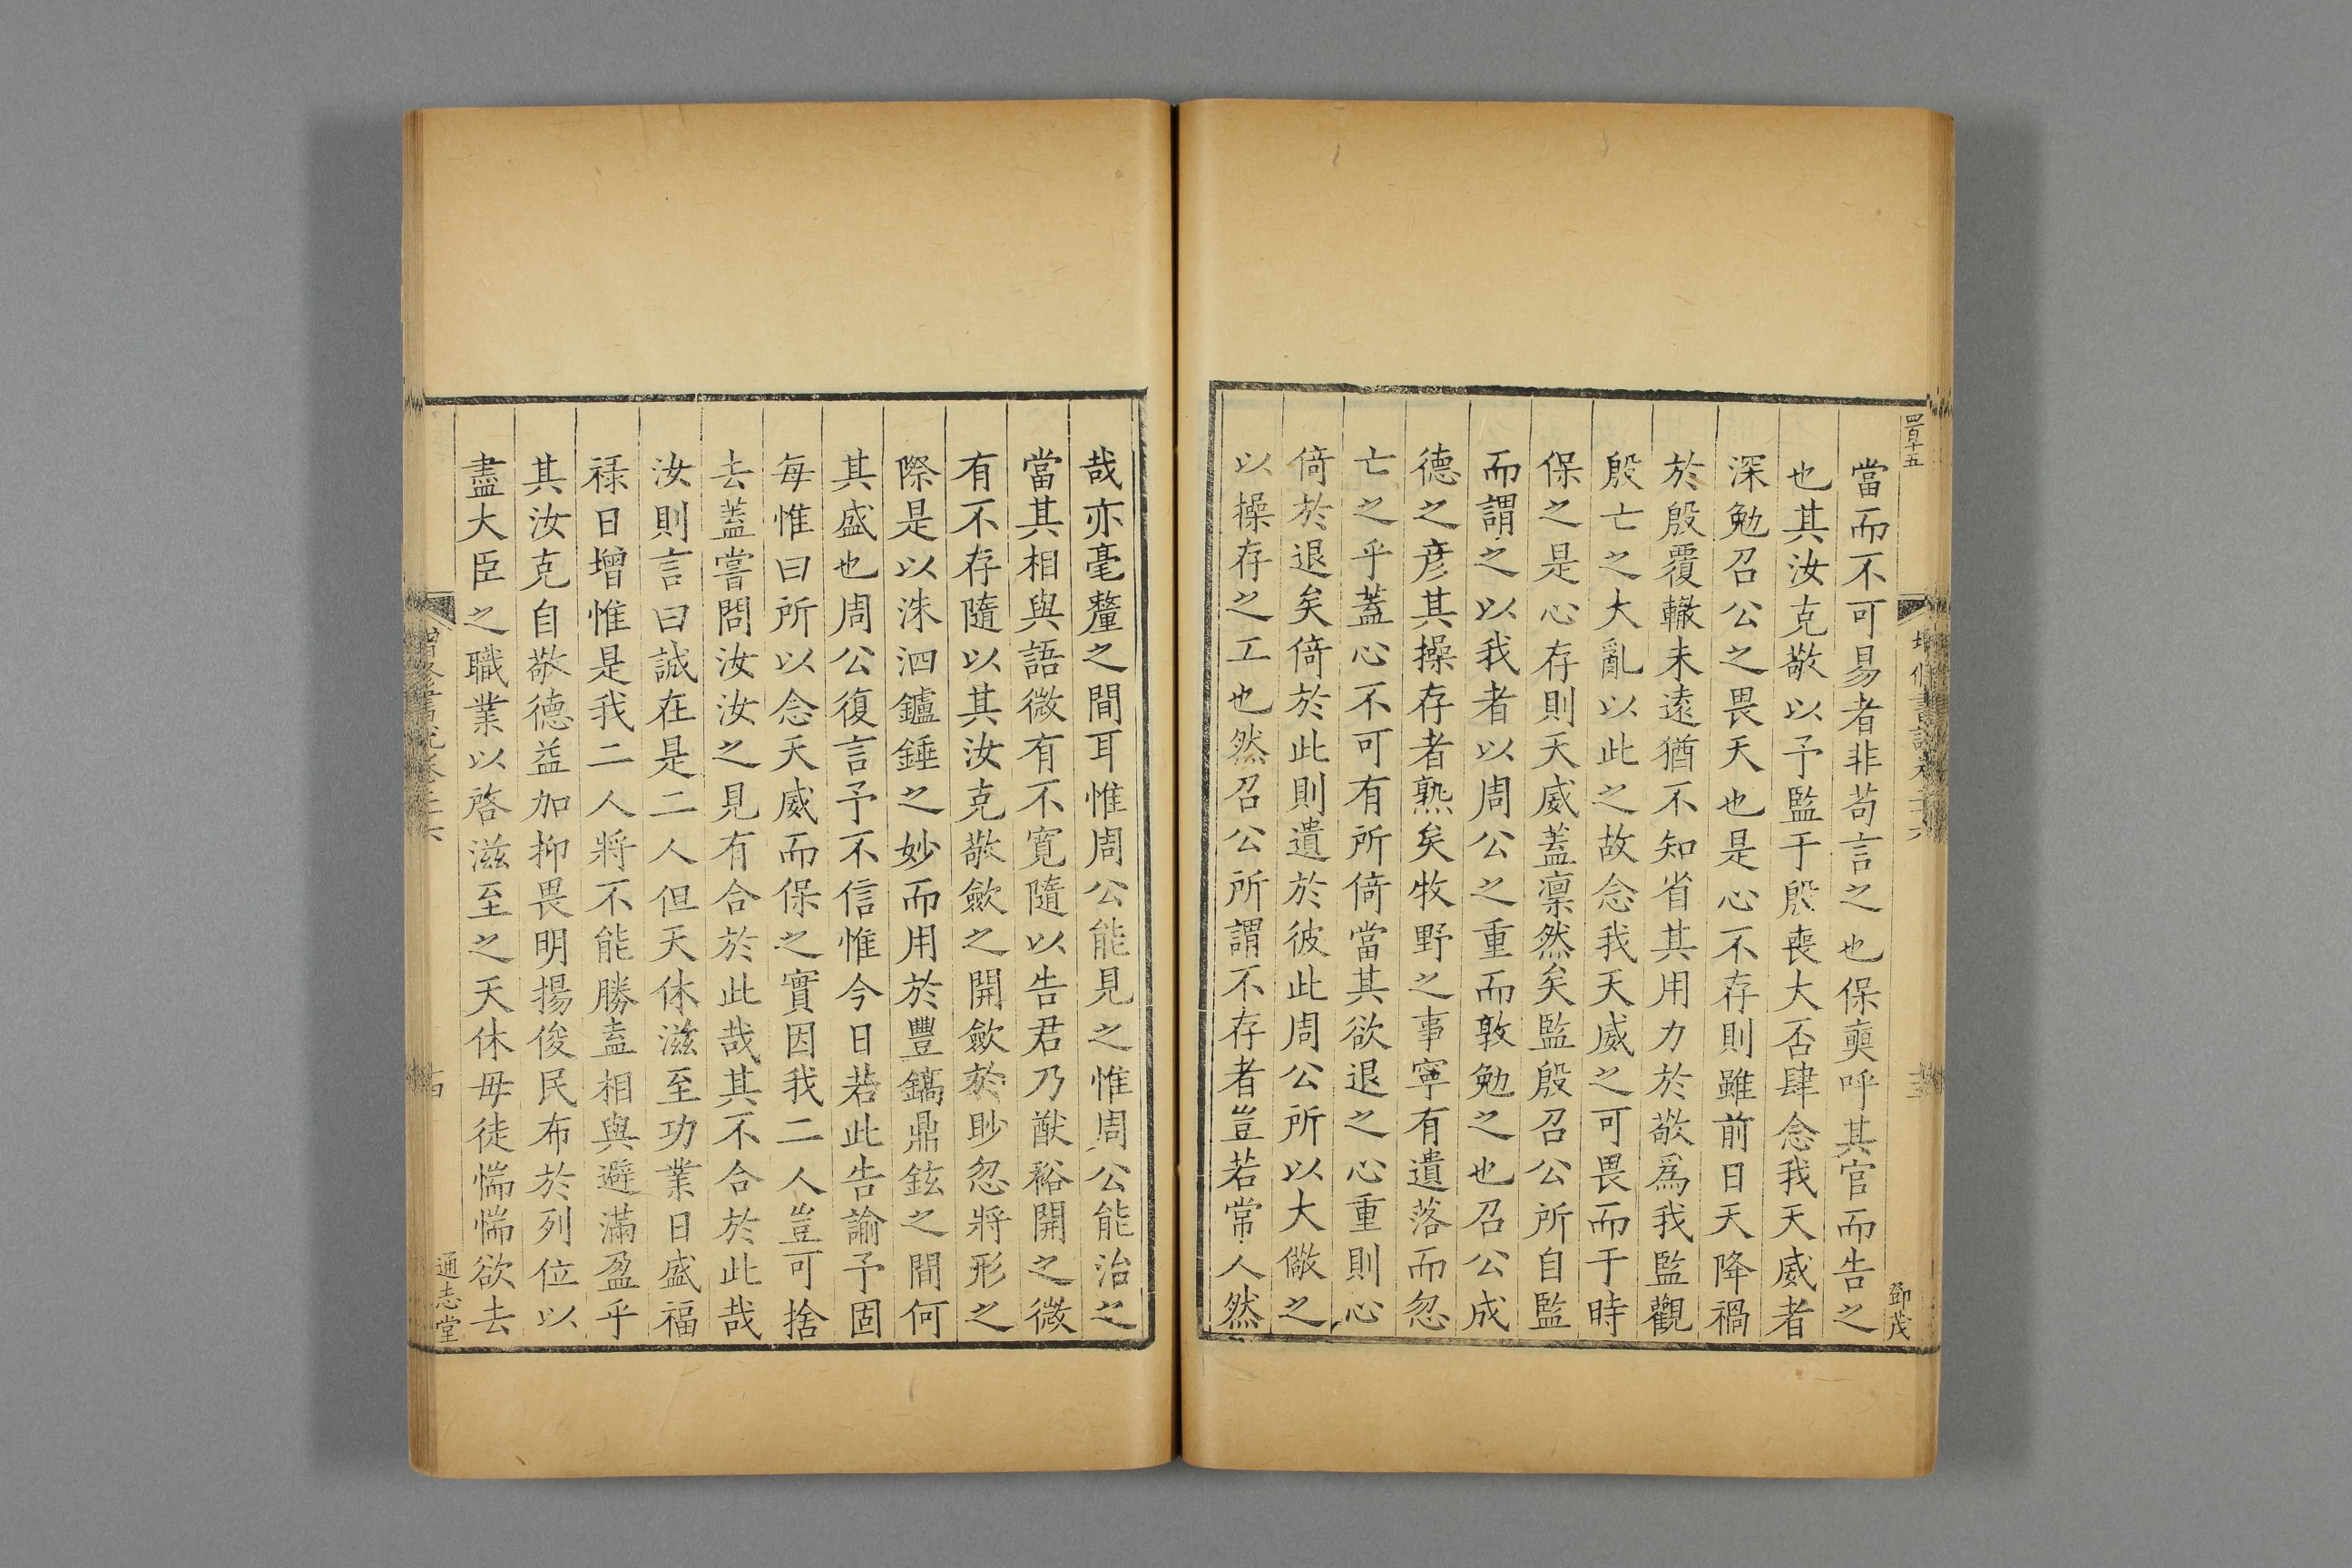 四百十五
鄧茂
當而不可易者非苟言之也保奭呼其官而告之
也其汝克敬以予監于殷喪大否肆念我天威者
深勉召公之畏天也是心不存則雖前日天降禍
於殷覆轍未遠猶不知省其用力於敬爲我監觀
殷亡之大亂以此之故念我天威之可畏而于時
保之是心存則天威蓋凛然矣監殷召公所自監
而謂之以我者以周公之重而敦勉之也召公成
德之彦其操存者熟矣牧野之事寧有遺落而忽
亡之乎蓋心不可有所倚當其欲退之心重則心
倚於退矣倚於此則遺於彼此周公所以大儆之
以操存之工也然召公所謂不存者豈若常人然
哉亦毫釐之間耳惟周公能見之惟周公能治之
當其相與語微有不寛隨以告君乃猷裕開之微
有不存隨以其汝克敬歛之開歛於眇忽將形之
際是以洙泗鑪錘之妙而用於豐鎬鼎鉉之間何
其盛也周公復言予不信惟今日若此告諭予固
每惟曰所以念天威而保之實因我二人豈可捨
去蓋嘗問汝汝之見有合於此哉其不合於此哉
汝則言曰誠在是二人但天休滋至功業日盛福
禄日增惟是我二人將不能勝盍相與避滿盈乎
其汝克自敬德益加抑畏明揚俊民布於列位以
盡大臣之職業以啓滋至之天休毋徒惴惴欲去
通志堂